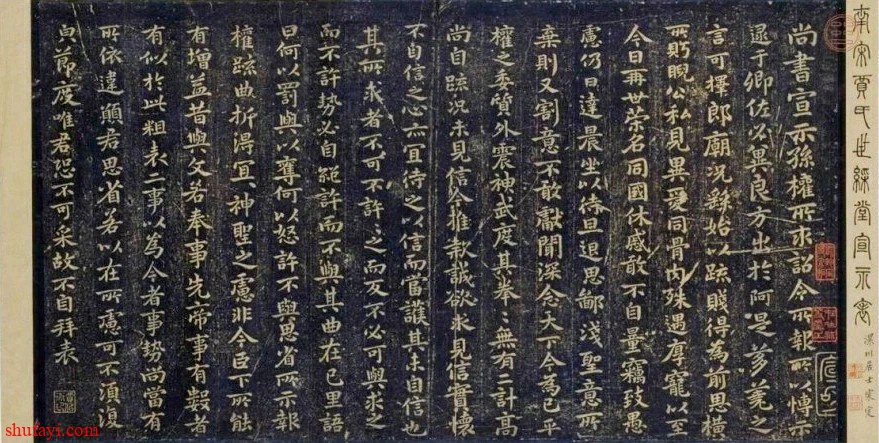 南宋賈氏世綵堂宣示表
尚書宣示孫權所求詔令所報所以博示
逮于卿佐必冀良方出於阿是芻蕘之
言可擇郎廟況繇始以疏賤得為前恩橫
所盻睨公私見異愛同骨肉殊遇厚寵以至
今日再世榮名同國休慼敢不自量竊致愚
慮仍日達晨坐以待旦退思鄙淺聖意所
棄則又割意不敢獻聞深念天下今為已平
權之委質外震神武度其拳々無有二計高
尚自疏況未見信今推款誠欲求見信實懷
不自信之心亦宜待之以信而當護其未自信也
其所求者不可不許々之而反不必可與求之
而不許勢必自絕許而不與其曲在已里語
曰何以罰與以奪何以怒許不與思省所示報
權疏曲折得宜神聖之慮非今臣下所能
有增益昔與文若奉事先帝事有數者
有似於此粗表二事以為今者事勢尚當有
所依違願君思省若以在所慮可不須復
貞節度唯君恐不可采故不自拜表
shufayi.com